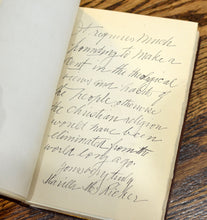 It requires much
pounding to make a
dent in the theological
views and habits of
the people otherwise
the Christian religion
would have been
eliminated from the
world long ago.
yours very truly
Marilla M. Ricker